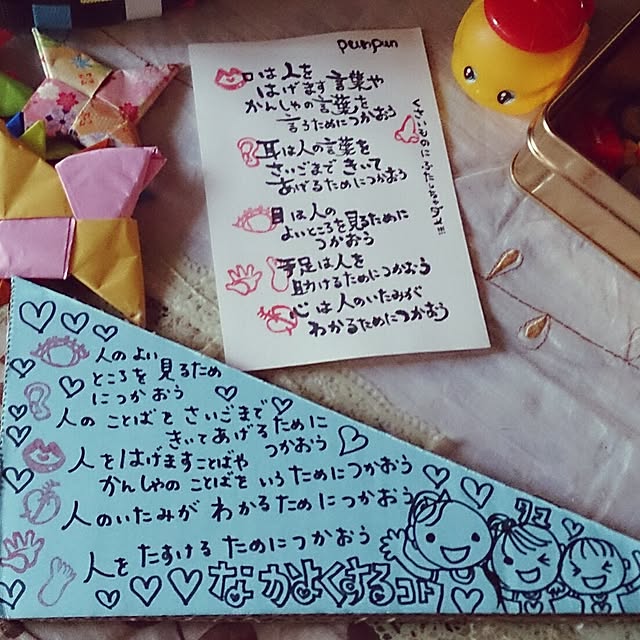 punpun
口は人を
はげます言葉や
かんしゃの言葉を
言うためにつかおう
耳は人の言葉を
さいごまできいて
あげるためにつかおう
目は人の
よいところを見るために
つかおう
手足は人を
助けるためにつかおう
心は人のいたみが
わかるためにつかおう
くさいものにふたしちゃダメ!!!
人のよい
ところを見るため
につかおう
人のことばをさいごまで
きいてあげるために
つかおう
人をはげますことばや
かんしゃのことばをいうためにつかおう
人のいたみがわかるためにつかおう
人をたすけるためにつかおう
なかよくするコト